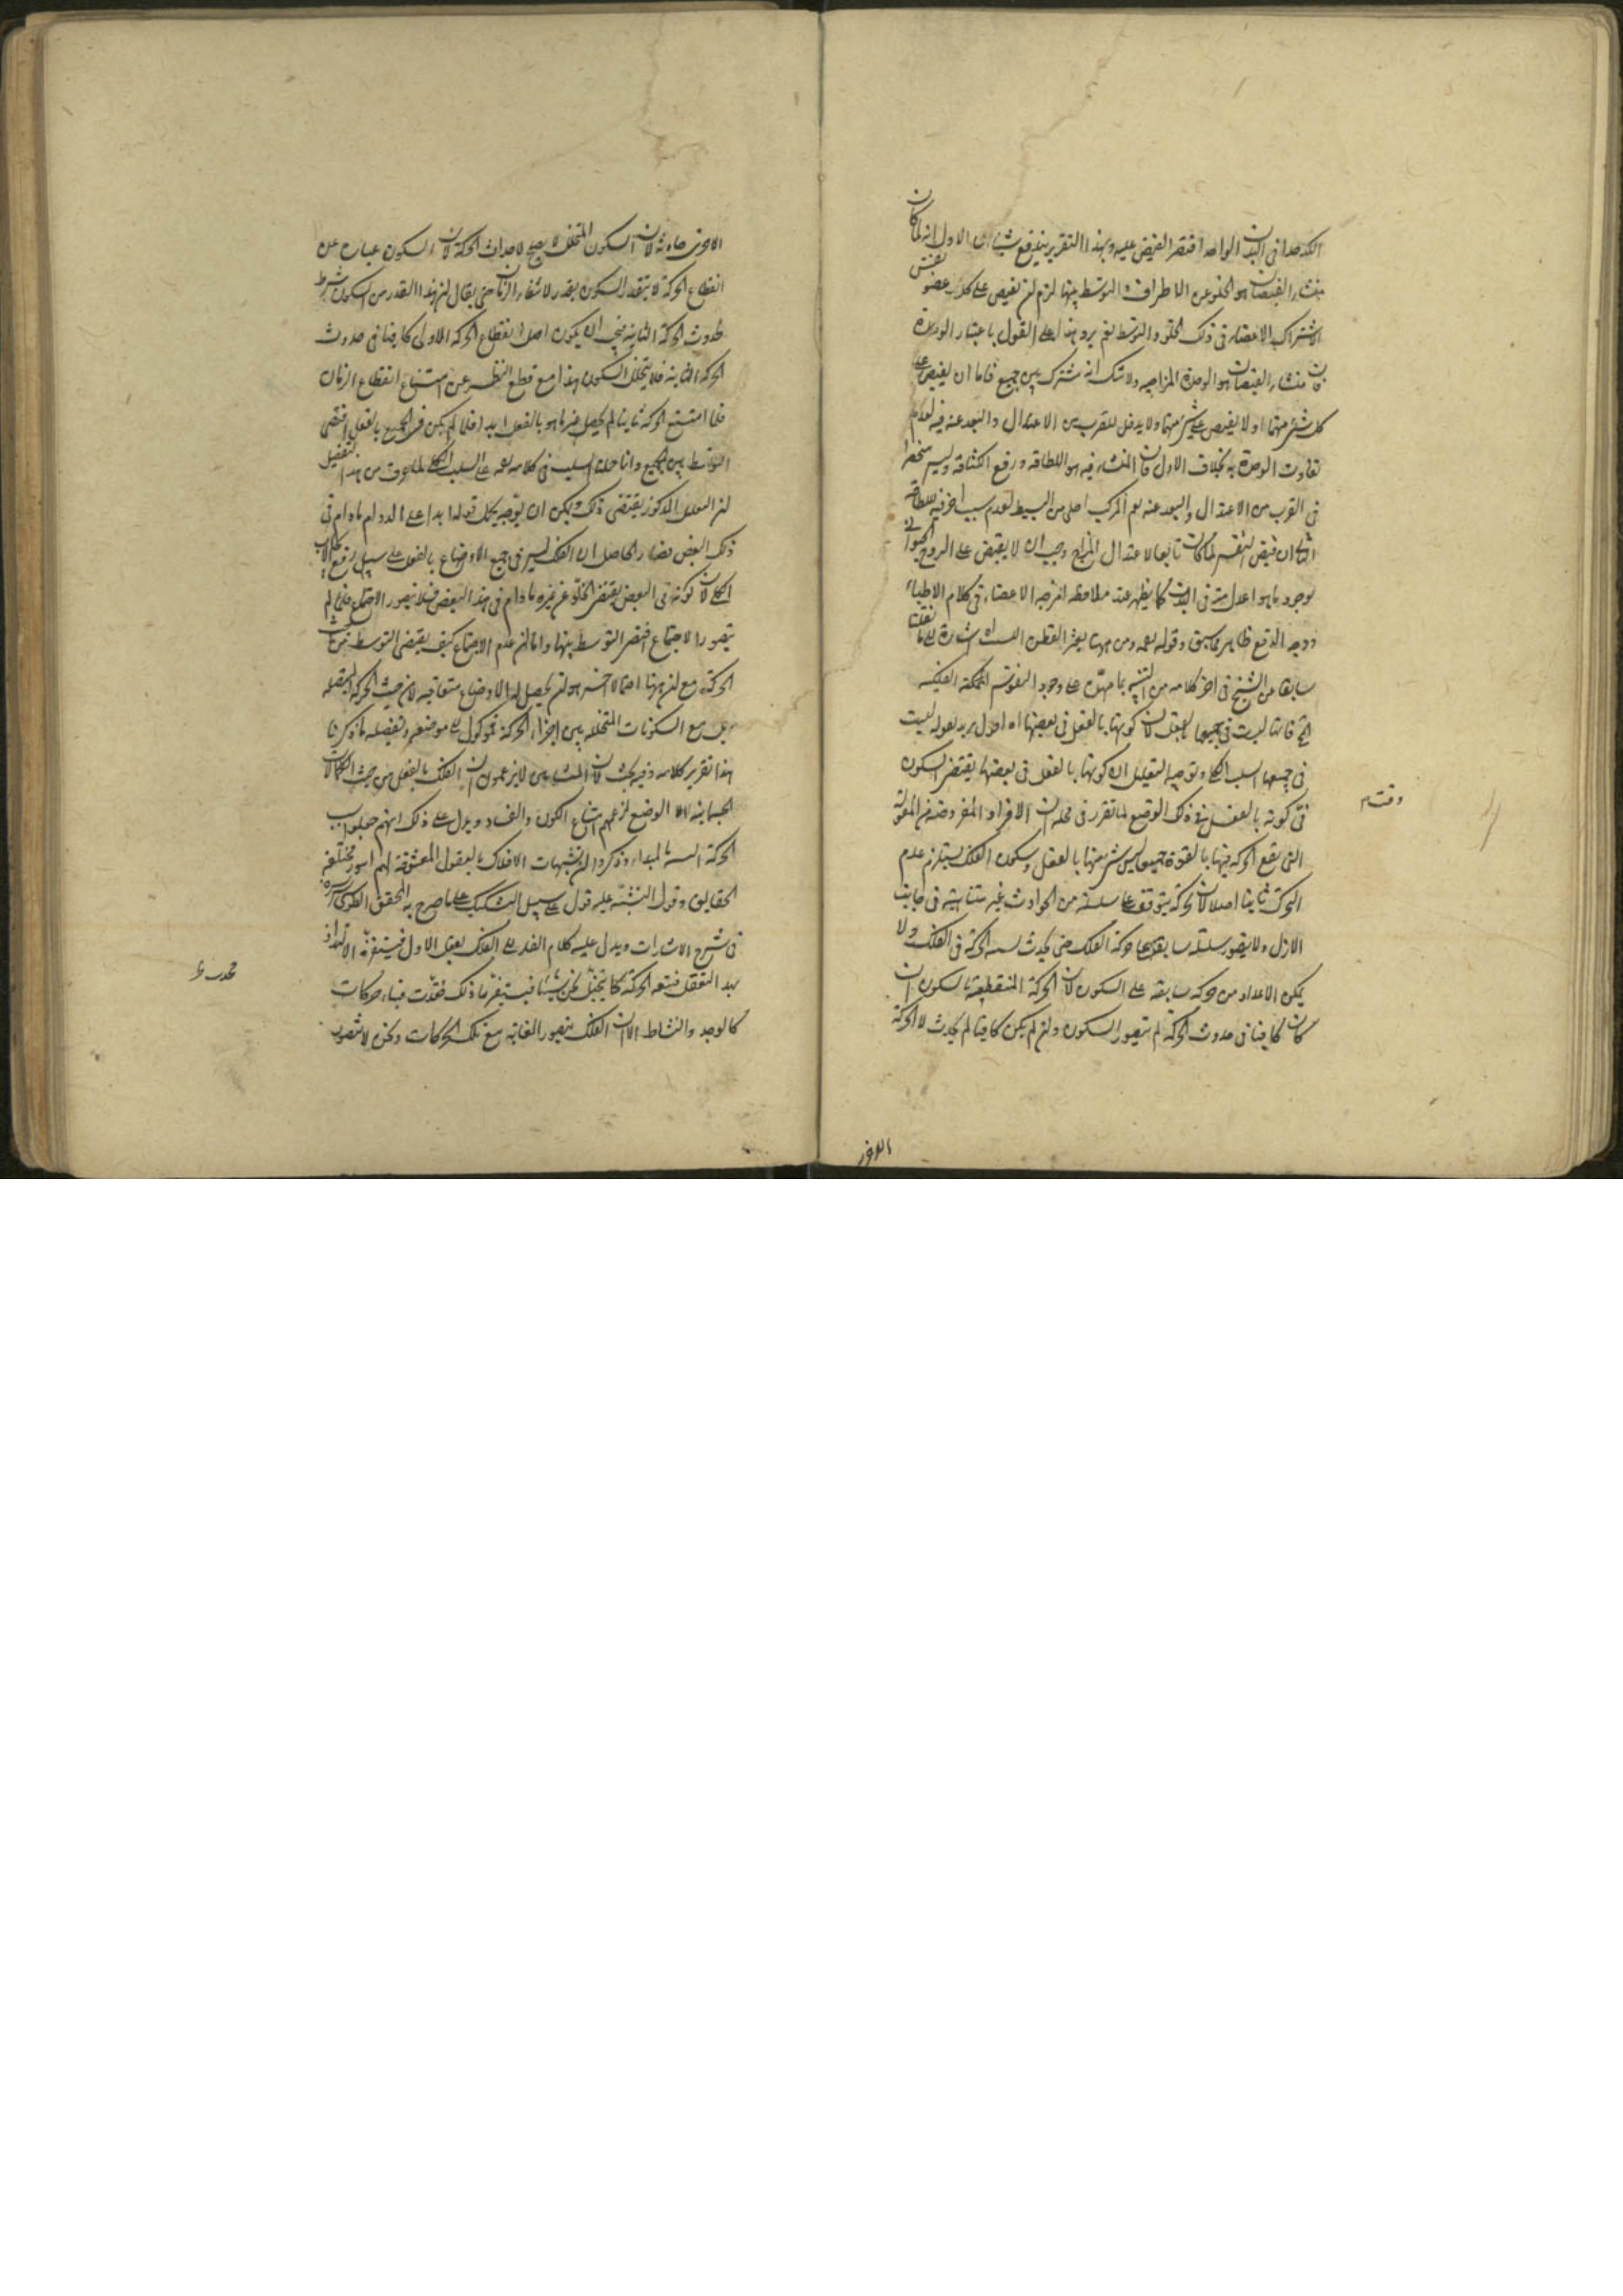 الواحد اقتضى الفيض عليه وبهذا التقرير يندفع شيئان الاول انه لما كان
منشاء الفيضان هو الخلو عن الاطراف والتوسط بينها لزم ان يفيض على كل عضو نفس
لاشتراك الاعضاء في ذلك الخلو والتوسط نعم يرد هذا على القول باعتبار الوحدة
فان منشاء الفيضان هو الوحدة المزاجيه ولا شك انه مشترك بين جميع فاما ان يفيض على
كل شئ منها او لا يفيض على شئ منها ولا يدخل للقرب من الاعتدال والبعد عنه فيه لعدم
تفاوت الوحدة به بخلاف الاول فان المنشاء فيه هو اللطافه ورفع الكثافة وليس منحصرا
في القرب من الاعتدال والبعد عنه نعم المركب من البسيط لعدم سبب اخر فيه للطافه
الثاني ان فيض النفس لما كان تابعا لاعتدال المزاج وجب ان لا يفيض على الروح الحيواني
لوجود ما هو اعدل منه في البدن كما يظهر عند ملاحظه امزجه الاعضاء في كلام الاطباء
ووجه الدفع ظاهر مما سبق وقوله ومن ههنا يعثر الفطن اشارة الى ما نقلنا
سابقا من الشيخ في اخر كلامه من التنبيه بما مهده على وجود النفوس الفلكيه
فانها ليست في جميعها بالفعل لان كونها بالفعل في بعضها اه اقول يريد بقوله ليست
في جميعها السلب الكلى وتوجيه التعليل ان كونها بالفعل في بعضها يقتضى السكون
في كونه بالفعل في ذلك الوضع لما تقرر في محله ان الافراد المفروضه من المقولة
التي تقع الحركه فيها بالقوة جميعا ليس شئ منها بالفعل وسكون الفلك يستلزم عدم
الحركة ثانيا اصلا لان الحركة يتوقف على سلسله من الحوادث غير متناهيه في جانب
الازل ولا يتصور سلسله سابقه على حركة الفلك حتى يحدث الحركة في الفلك ولا
يمكن الاعداد من حركه سابقه على السكون لان الحركة المنقطعة بالسكون ان
كان كافيا في حدوث الحركة لم يتصور السكون وان لم يكن كافيا لم يحدث لا الحركة
الاخرى
الاخرى حادثه لان السكون المتخلل لا يصلح لاحداث الحركة لان السكون عبارة عن
انقطاع الحركة لا يتقدر السكون بقدر لانتفاء الزمان حتى يقال ان هذا القدر من السكون شرط
لحدوث الحركة الثانيه فيجب ان يكون اصل انقطاع الحركه الاولى كافيا في حدوث
الحركه الثانيه فلا يتخلل السكون هذا مع قطع النظر عن امتناع انقطاع الزمان
فلما امتنع الحركة ثانيا لم يحصل غير ما هو بالفعل ابدا فلما لم يكن في الجميع بالفعل اقتضى
التوسط بين الجميع وانا حملنا السلب في كلامه على السلب الكلى من هذا التفصيل
المذكور يقتضى ذلك ويمكن ان يوجه بحمل قوله ابدا على الدوام ما دام في
ذلك البعض فصار الحاصل ان الفلك ليس في جميع الاوضاع بالفعل على سبيل رفع الايجاب
الكلى لان كونه في البعض يقتضى الخلو عن غيره ما دام في هذا البعض فلا يتصور الاجتماع فلما لم
يتصور الاجتماع اقتضى التوسط بينها واما ان عدم الاجتماع كيف يقتضى التوسط من حيث
الحركة مع ان ههنا احتمالا اخر هو ان يحصل له الاوضاع متعاقبه لا من حيث الحركة المتصله
بل مع السكونات المتخلله بين اجزاء الحركة فموكول الى موضعه وتفصيله ما ذكرنا
هذا تقرير كلامه وفيه بحث لان المشائين لا يزعمون ان الفلك بالفعل من حيث الكمالات
الجسمانيه الا الوضع لزعمهم امتناع الكون والفساد ويدل على ذلك انهم جعلوا
الحركة المبداء وذكروا ان تشبهات الافلاك بالعقول المعشوقة لهم امور مختلفه
الحقايق وقول التشبه عليه قول على سبيل التشكيك على ما صرح به المحقق الطوسى
في شرح الاشارات ويدل عليه كلام الفلك يعقل الاول فيستفزه الالتذاذ
بهذا التعقل فيتبعه الحركة كما يتخيل نحن شيئا فيستفزنا ذلك فحدث فينا حركات
كالوجد والنشاط الا ان الفلك يتصور الغايه مع تلك الحركات ونحن لا نتصور